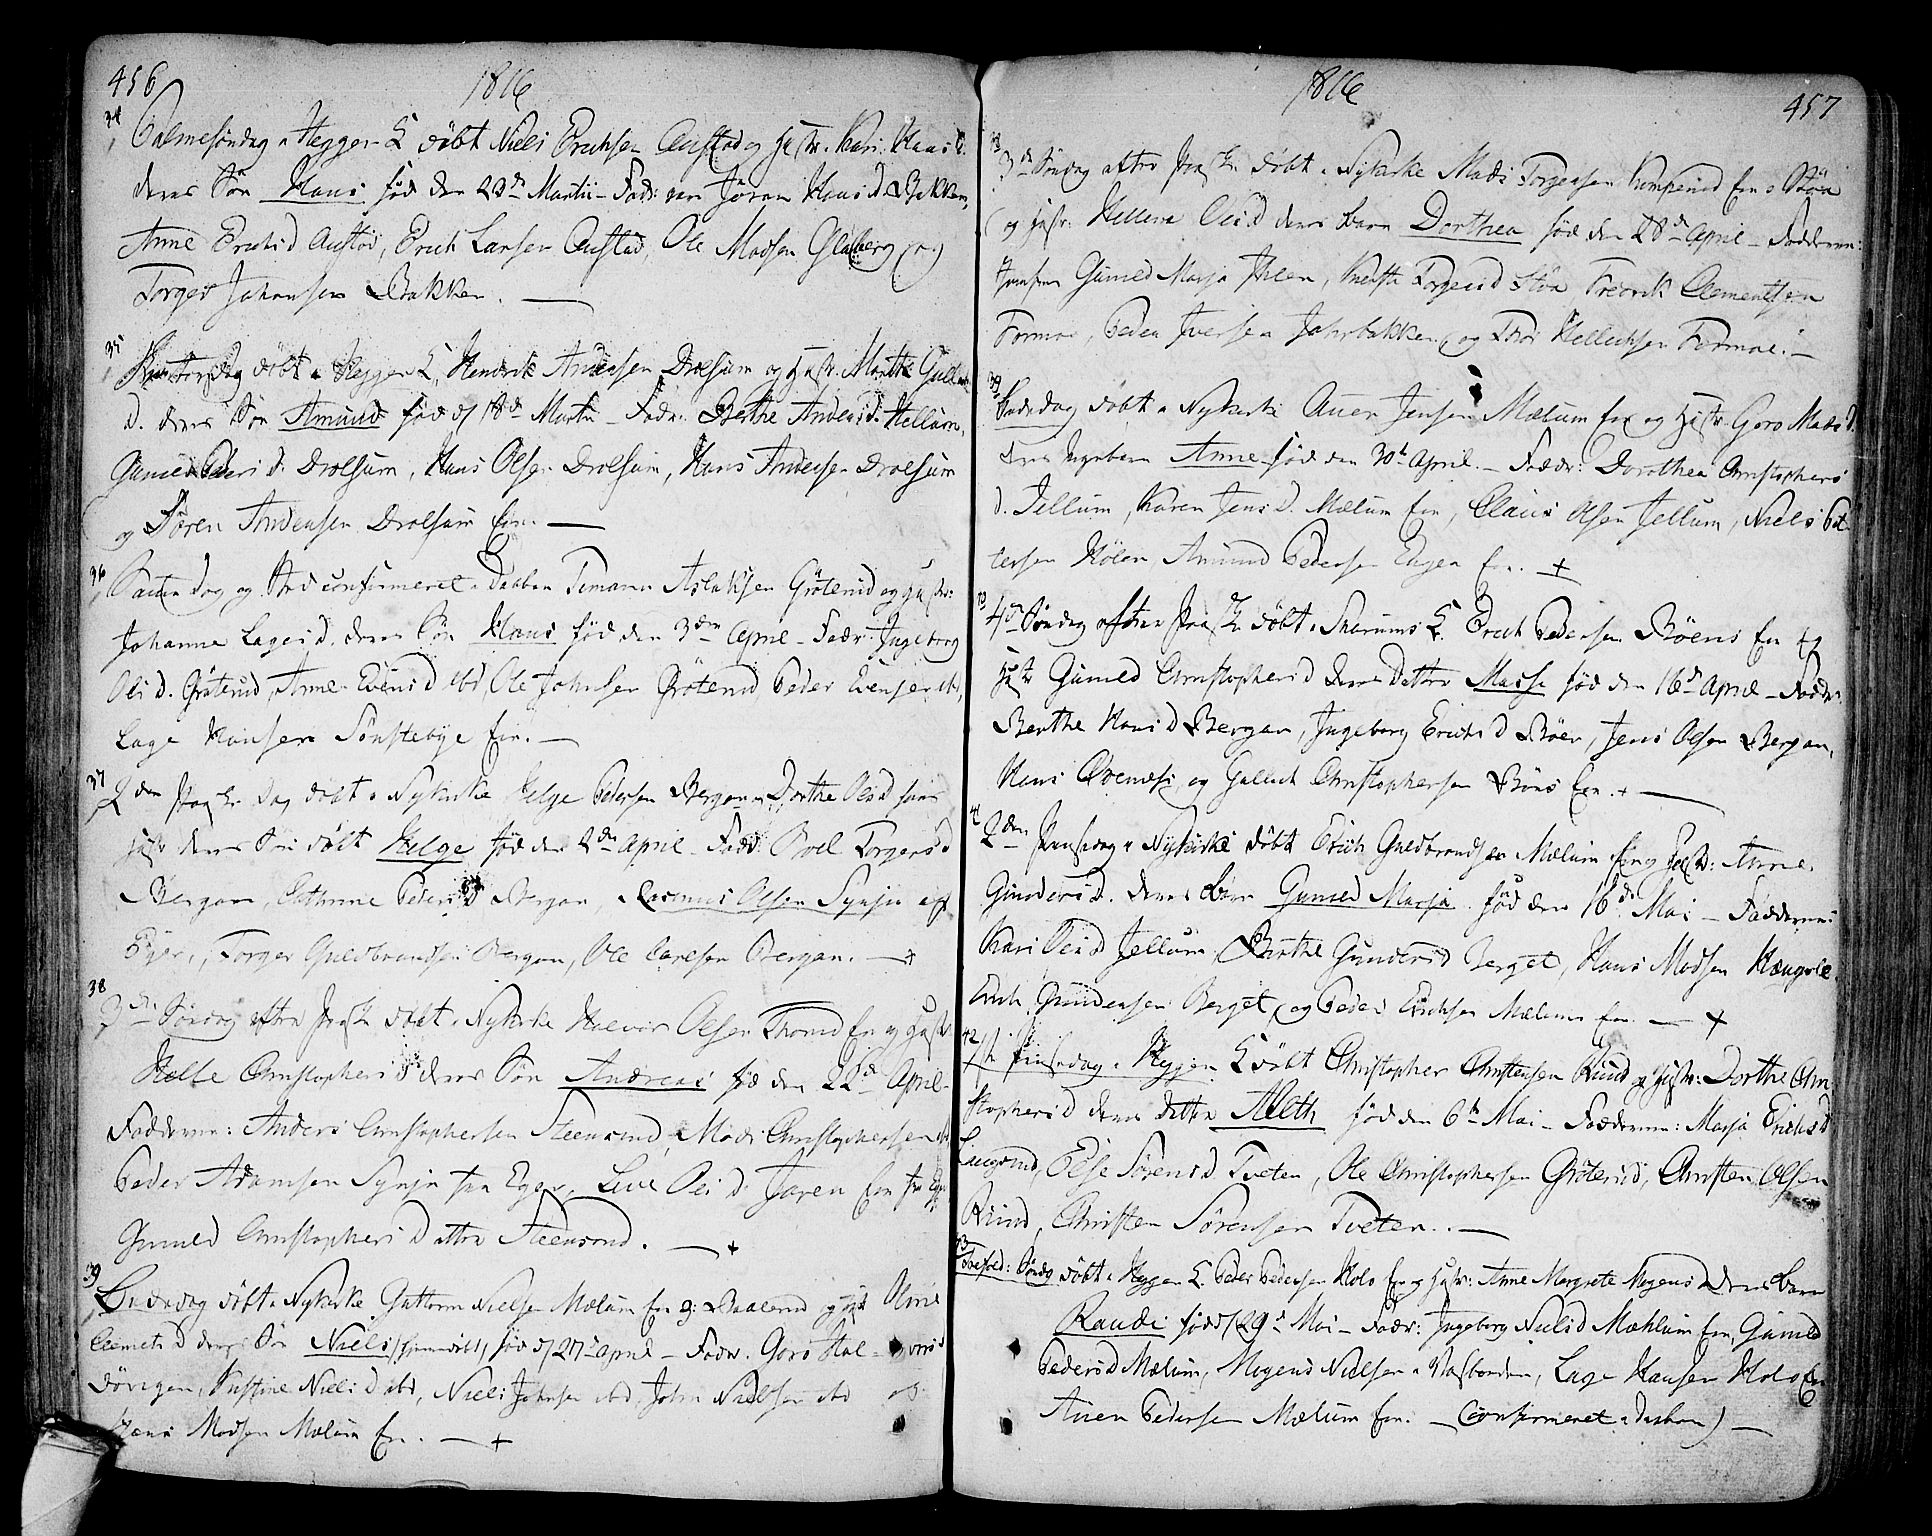 456
1816
34 Palmesöndag i Heggen K döbt Niels Erichsen Austad og Hustr. Kari Hans D.
deres Sön Hans föd den 23de Martii – Fadd: vare Jöran Hans D Bakken,
Anne Erichs D Austad, Erich Larsen Austad, Ole Madsen Glaberg og
Torger Johansen Bakken. —
35 Skiertorsdag döbt i Heggen K. Hendrik Andersen Drolsum og Hustr. Marthe Gulbr
D. deres Sön Amund föd d/ 18de Martii – Fadr: Berthe Anders D. Hellum,
Gunild Peders D. Drolsum, Hans Olsen Drolsum, Hans Andersen Drolsum
og Sören Andersen Drolsum Eie. —
36 Samme Dag og Sted confirmeret Daaben Temann Aslaksen Gröterud og Hustr:
Johanne Lages D. deres Sön Hans föd den 3den April – Fadr: Ingeborg
Ols D. Gröterud, Anne Evens D ibd, Ole Johnsen Gröterud Peder Evensen ibd,
Lage Hansen Sönstebye Eie. —
37 2den Paaske Dag döbt i Nykirke Helge Pedersen Bergan Dorthe Ols D hans
Hustr deres Sön döbt Helge föd den 2den April – Fadd: Boel Torgers D
Bergan, Cathrine Peders D Bergan, Rasmus Olsen Synju af
Eger, Torger Guldbrandsen Bergan, Ole Carlsen Bergan. — +
38 3die Söndag efter Paaske döbt i Nykirke Halvor Olsen Thorud Eie og Hustr
Helle Christophers D deres Sön Andreas föd den 22de April –
Fadderne: Anders Christophersen Steensrud, Mads Christophersen ibd
Peder Adamsen Synju fra Eger, Live Ols D. Jaren Eie fra Eger
Gunild Christophers D ættra Steensrud. — +
39 Bededag döbt i Nykirke Guttorm Nielsen Mælum Eie og Hustr Oline
Clemets D deres Sön Niels / hiemmedöbt / föd d/ 27de April – Fadr. Goro Hal- vors D
Kistine Niels D ibd, Niels Johnsen ibd, John Nielsen ibd og
Hans Madsen Mælum Eie. — +
1816
457
3die Söndag efter Paaske döbt i Nykirke Mads Torgersen Komperud Eie Stöa
og Hustr. Hellene Ols D deres Barn Dorthea föd den 28de April – Fadderne:
Jomfrue Gunild Marja Ihlen, Kirstie Torgers D Stöa, Fredrik Clementsen
Formoe, Peder Iversen Jahrbakken og Thor Hellechsen Formoe. —
39 Bededag döbt i Nykirke Auen Jensen Mælum Eie og Hustr Goro Mads D.
deres Pigebarn Anne föd den 30te April. – Faddr: Dorothea Christophers
D. Jellum, Karen Jens D. Mælum Eie, Claus Olsen Jellum, Niels Pet-
tersen Hölen, Amund Pedersen Engen Eie. — +
4de Söndag efter Paaske döbt i Snarums K. Erich Pedersen Böens Eie og
Hustr Gunild Christophers D deres Datter Masse föd den 16de April – Faddr:
Berthe Hans D Bergan, Ingeborg Erichs D Böen, Jens Olsen Bergan,
Hans og Gulbrand Christophersen Böens Eie. + —
41 2den Pinsedag i Nykirke döbt Erich Guldbrandsen Mælum Eie og Hustr: Anne
Gunders D. deres Barn Gunild Marja föd den 16de Mai – Fadderne:
Kari Ols D Jellum, Berthe Gunders D Berget, Hans Madsen Hængsle
Erich Gundersen Berget og Peder Erichsen Mælum Eie. — +
42 1ste Pinsedag i Heggen K döbt Christopher Christensen Rund og Hustr: Dorthe Chri
stophers D deres datter Aleth föd den 6te Mai – Fadderne: Marja Erichs D
Langrud, Else Sörens D Tveten, Ole Christophersen Gröterud, Christen Olsen
Rund, Christen Sörensen Tveten. —
43 Trefold: Söndag döbt i Heggen K. Peder Pedersen Holo Eie og Hustr: Anne Margrete Mogens D deres Barn
Randi född/ 29de Mai – Faddr: Ingeborg Niels D Mæhlum Eie, Gunild
Peders D Mælum, Mogens Nielsen i Lage Hansen Holo Eie
Auen Pedersen Mælum Eie. — (Confirmeret i Daaben) —